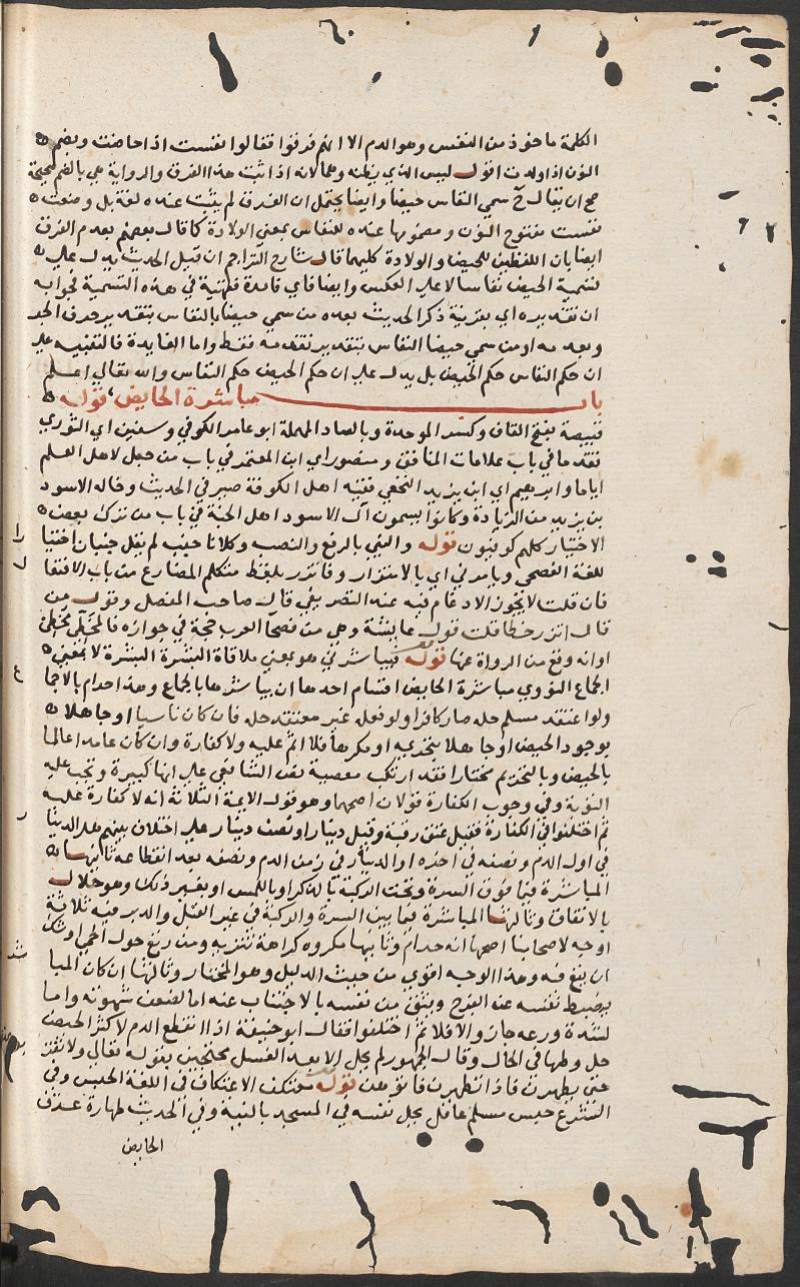 الكلمة ماخوذ من النفس وهو الدم الا انهم فرقوا فقالوا نفست اذا حاضت وبضم
النون اذا ولدت اقول ليس الذي يظنه وهما لانه اذا ثبت هذا الفرق والرواية هي بالضم صحيحة
صح ان يقال ح سمي النفاس حيضا وايضا يحتمل ان الفرق لم يثبت عنده لغة بل وضعت
نفست مفتوح النون ومضمومها عنده للنفاس بمعني الولادة كما قال بعضهم بعدم الفرق
ايضا بان اللفظين للحيض والولادة كليهما قال شارح التراجم ان قيل الحديث يدل علي
تسمية الحيض نفاسا لا علي العكس وايضا فاي فائدة فقهية في هذه التسمية فجوابه
ان تقديره اي بقرينة ذكر الحديث بعده من سمي حيضا بالنفاس بتقدير حرف الجر
وبعدمه او من سمي حيضا النفاس بتقدير تقدمه فقط واما الفايدة فالتنبيه علي
ان حكم النفاس حكم الحيض بل يدل علي ان حكم الحيض حكم النفاس والله تعالي اعلم
باب مباشرة الحايض قوله
قبيصة بفتح القاف وكسر الموحدة وبالصاد المهملة ابو عامر الكوفي وسفين اي الثوري
تقدما في باب علامات المنافق ومنصور اي ابن المعتمر في باب من جعل لاهل العلم
اياما وابرهيم اي ابن يزيد النخعي فقيه اهل الكوفة صير في الحديث وخاله الاسود
بن يزيد من الزيادة وكانوا يسمون آل الاسود اهل الجنة في باب من ترك بعض
الاختيار كلهم كوفيون قوله والنبي بالرفع والنصب وكلانا جنب لم يقل جنبان اختيا
للغة الفصحي ويامرني اي بالاتزار وفاتزر بلفظ متكلم المضارع من باب الافتعا
فان قلت لا يجوز الادغام فيه عند التصريفي قال صاحب المفصل وقول من
قال اتزر خطا قلت قول عايشة وهي من فصحآ العرب حجة في جوازه فالمخطي مخطئ
او انه وقع من الرواة عنها قوله فيباشرني هو بمعني ملاقاة البشرة البشرة لا بمعني
الجماع النووي مباشرة الحايض اقسام احدها ان يباشرها بالجماع وهذا حرام بالاجما
ولو اعتقد مسلم حله صار كافرا ولو فعل غير معتقد حله فان كان ناسيا او جاهلا
بوجود الحيض او جاهلا بتحريمه او مكرها فلا اثم عليه ولا كفارة وان كان عامدا عالما
بالحيض وبالتحريم مختارا فقد ارتكب معصية نص الشافعي علي انها كبيرة وتجب عليه
التوبة وفي وجوب الكفارة قولان اصحهما وهو قول الايمة الثلاثة انه لا كفارة عليه
ثم اختلفوا في الكفارة فقيل عتق رقبة وقيل دينار او نصف دينار علي اختلاف بينهم هل الدينار
في اول الدم ونصفه في اخره او الدينار في زمن الدم ونصفه بعد انقطاعه ثانيها
المباشرة فيما فوق السرة وتحت الركبة بالذكر او باللمس او بغير ذلك وهو حلال
بالاتفاق وثالثها المباشرة فيما بين السرة والركبة في غير القبل والدبر فيه ثلاثة
اوجه لاصحابنا اصحها انه حرام وثانيها مكروه كراهة تنزيه ومن رتع حول الحمي اوشك
ان يقع فيه وهذا الوجه اقوي من حيث الدليل وهو المختار وثالثها ان كان المبا
يضبط نفسه عن الفرج ويثق من نفسه بالاجتناب عنه اما لضعف شهوته واما
لشدة ورعه جاز والا فلا ثم اختلفوا فقال ابو حنيفة اذا انقطع الدم لاكثر الحيض
حل وطها في الحال وقال الجمهور لم يحل الا بعد الغسل محتجين بقوله تعالي ولا تقر
حتي يطهرن فاذا تطهرن فاتوهن قوله معتكف الاعتكاف في اللغة الحبس وفي
الشرع حبس مسلم عاقل بحل نفسه في المسجد بالنية وفي الحديث طهارة عرق
الحايض